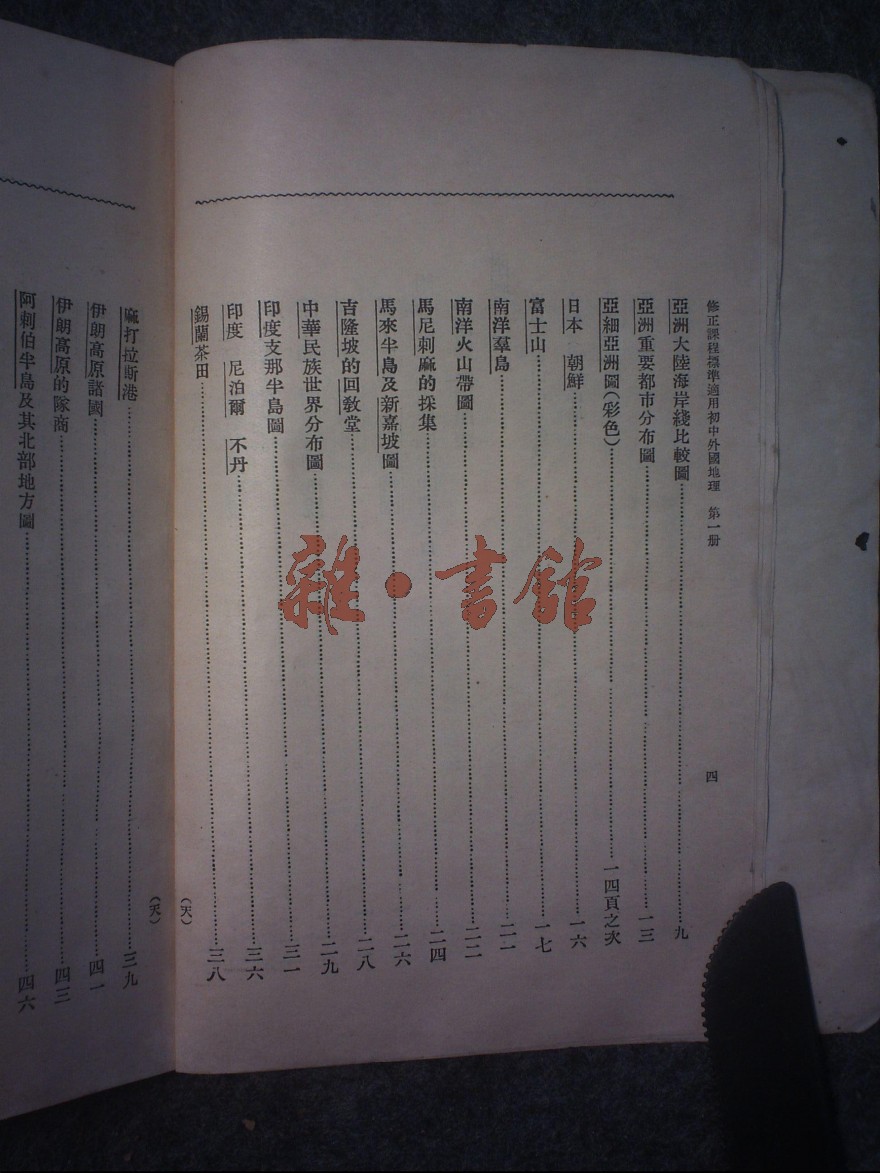 修正課程標準適用初中外國地理 第一册
四
亞洲大陸海岸綫比較圖 九
亞洲重要都市分布圖 一三
亞細亞洲圖(彩色) 一四頁之次
日本 朝鮮 一六
富士山 一七
南洋羣島 二一
南洋火山帶圖 二二
馬尼剌麻的採集 二四
馬來半島及新嘉坡圖 二六
吉隆坡的回教堂 二八
中華民族世界分布圖 二九
印度支那半島圖 三一
印度 尼泊爾 不丹 三六
錫蘭茶田 三八
(天)
(天)
麻打拉斯港 三九
伊朗高原諸國 四一
伊朗高原的隊商 四三
阿剌伯半島及其北部地方圖 四六
雜·書館